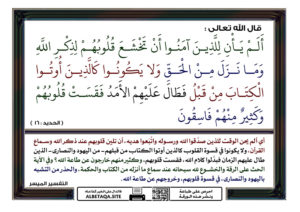 قال الله تعالى :
أَلَمْ يَأْنِ لِلَّذِينَ آمَنُوا أَنْ تَخْشَعَ قُلُوبُهُمْ لِذِكْرِ اللَّهِ
وَمَا نَزَلَ مِنَ الْحَقِّ وَلَا يَكُونُوا كَالَّذِينَ أُوتُوا
الْكِتَابَ مِنْ قَبْلُ فَطَالَ عَلَيْهِمُ الْأَمَدُ فَقَسَتْ قُلُوبُهُمْ
وَكَثِيرٌ مِنْهُمْ فَاسِقُونَ
(الحديد : ١٦)
أي ألم يحن الوقت للذين صدقوا الله ورسوله واتبعوا هديه، أن تلين قلوبهم عند ذكر الله وسماع
القرآن، ولا يكونوا في قسوة القلوب كالذين أوتوا الكتاب من قبلهم - من اليهود والنصارى - الذين
طال عليهم الزمان فبدلوا كلام الله ، فقست قلوبهم، وكثير منهم خارجون عن طاعة الله ؟ وفي الآية
الحث على الرقة والخشوع لله سبحانه عند سماع ما أنزله من الكتاب والحكمة، والحذر من التشبه
باليهود والنصارى، في قسوة قلوبهم، وخروجهم عن طاعة الله.
التفسير الميسر
ALBETAQA.SITE